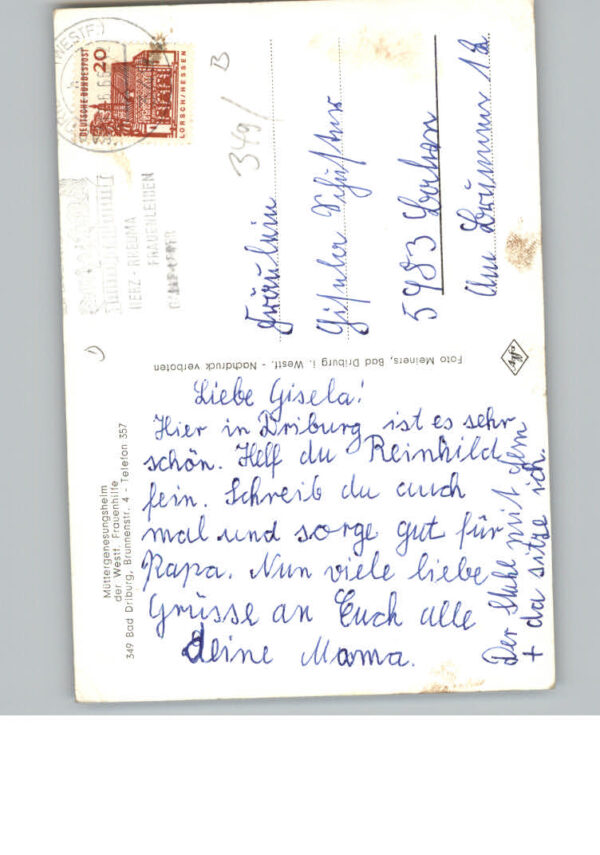 Liebe Gisela!
Hier in Driburg ist es sehr
schön. Helf du Reinhild
fein. Schreib du auch
mal und sorge gut für
Papa. Nun viele liebe
Grüsse an Euch alle
deine Mama.
Der Stuhl mit dem
+ da sitze ich.
Fräulein
Gisela
5983
Am 12
Müttergenesungsheim
der Westf. Frauenhilfe
349 Bad Driburg, Brunnenstr. 4 - Telefon 357
Foto Meiners, Bad Driburg i. Westf. - Nachdruck verboten
DEUTSCHE BUNDESPOST
20
LORSCH/HESSEN
(WESTF.)
HERZ - RHEUMA
FRAUENLEIDEN
349/ B